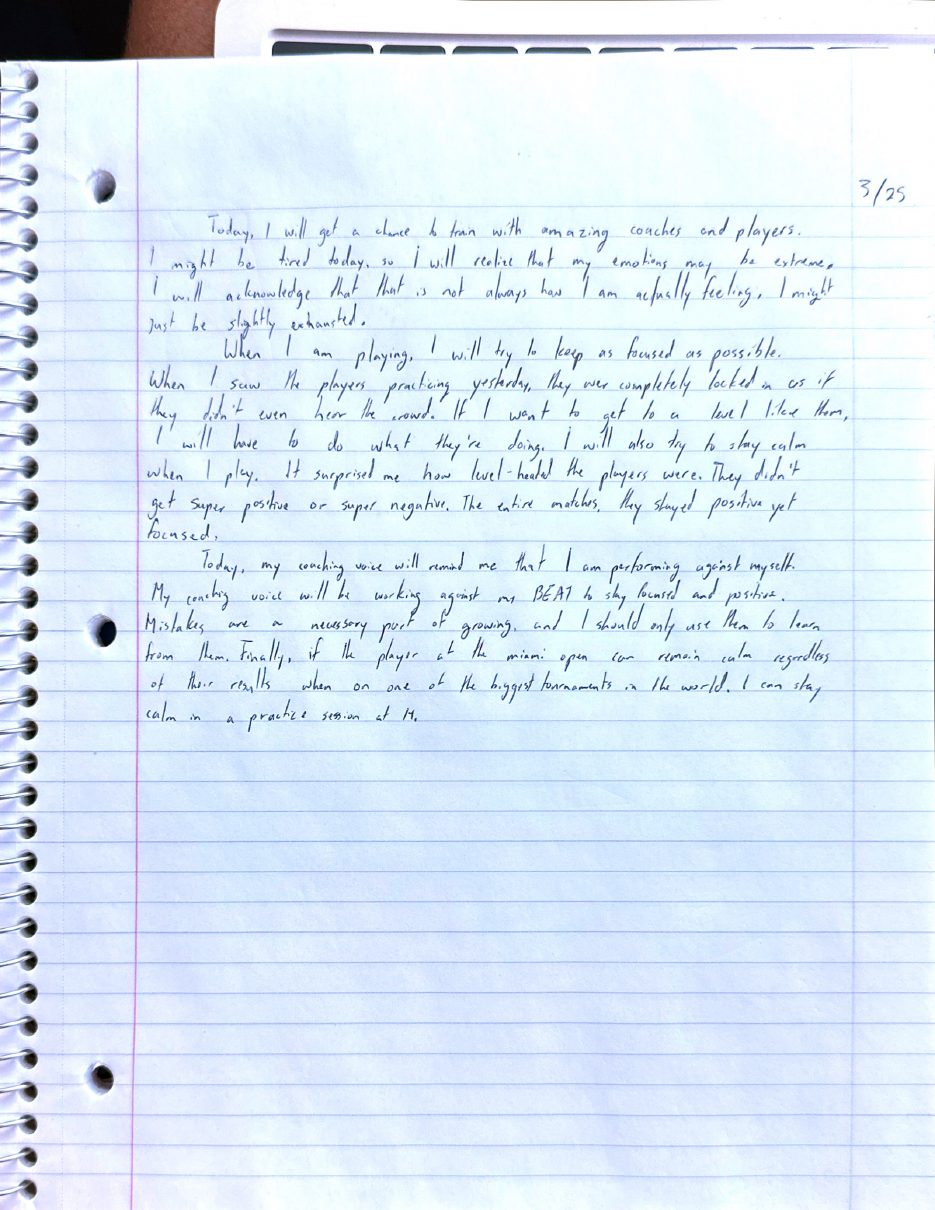 3/25
Today, I will get a chance to train with amazing coaches and players.
I might be tired today, so I will realize that my emotions may be extreme.
I will acknowledge that that is not always how I am actually feeling. I might
just be slightly exhausted.
When I am playing, I will try to keep as focused as possible.
When I saw the players practicing yesterday, they wer completely locked in as if
they didn't even hear the crowd. If I want to get to a level like them,
I will have to do what they're doing. I will also try to stay calm
when I play. It surprised me how level-headed the players were. They didn't
get super positive or super negative. The entire matches, they stayed positive yet
focused.
Today, my coaching voice will remind me that I am performing against myself.
My coaching voice will be working against my BEAT to stay focused and positive.
Mistakes are a necessary part of growing, and I should only use them to learn
from them. Finally, if the player at the miami open can remain calm regardless
of their results when on one of the biggest tournaments in the world, I can stay
calm in a practice session at